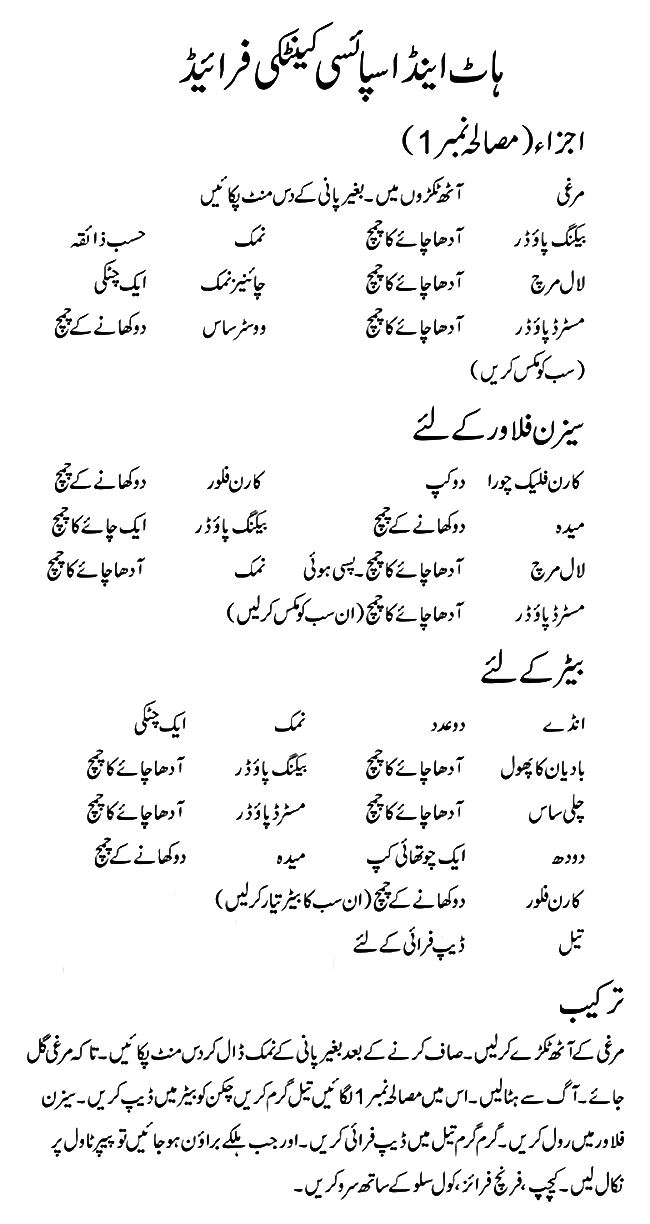 ہاٹ اینڈ اسپائسی کینٹکی فرائیڈ
اجزاء (مصالحہ نمبر 1)
مرغی آٹھ ٹکڑوں میں۔ بغیر پانی کے دس منٹ پکائیں
بیکنگ پاؤڈر آدھا چائے کا چمچ نمک حسب ذائقہ
لال مرچ آدھا چائے کا چمچ چائنیز نمک ایک چٹکی
مسٹرڈ پاؤڈر آدھا چائے کا چمچ ووسٹر ساس دو کھانے کے چمچ
(سب کو مکس کریں)
سیزن فلاور کے لئے
کارن فلیک چورا دو کپ کارن فلور دو کھانے کے چمچ
میدہ دو کھانے کے چمچ بیکنگ پاؤڈر ایک چائے کا چمچ
لال مرچ آدھا چائے کا چمچ۔ پسی ہوئی نمک آدھا چائے کا چمچ
مسٹرڈ پاؤڈر آدھا چائے کا چمچ (ان سب کو مکس کرلیں)
بیٹر کے لئے
انڈے دو عدد نمک ایک چٹکی
بادیان کا پھول آدھا چائے کا چمچ بیکنگ پاؤڈر آدھا چائے کا چمچ
چلی ساس آدھا چائے کا چمچ مسٹرڈ پاؤڈر آدھا چائے کا چمچ
دودھ ایک چوتھائی کپ میدہ دو کھانے کے چمچ
کارن فلور دو کھانے کے چمچ (ان سب کا بیٹر تیار کرلیں)
تیل ڈیپ فرائی کے لئے
ترکیب
مرغی کے آٹھ ٹکڑے کرلیں۔ صاف کرنے کے بعد بغیر پانی کے نمک ڈال کر دس منٹ پکائیں۔ تاکہ مرغی گل
جائے۔ آگ سے ہٹالیں۔ اس میں مصالحہ نمبر 1 لگائیں تیل گرم کریں چکن کو بیٹر میں ڈیپ کریں۔ سیزن
فلاور میں رول کریں۔ گرم گرم تیل میں ڈیپ فرائی کریں۔ اور جب ہلکے براؤن ہوجائیں تو پیپر ٹاول پر
نکال لیں۔ کیچپ، فرنچ فرائز، کول سلو کے ساتھ سرو کریں۔